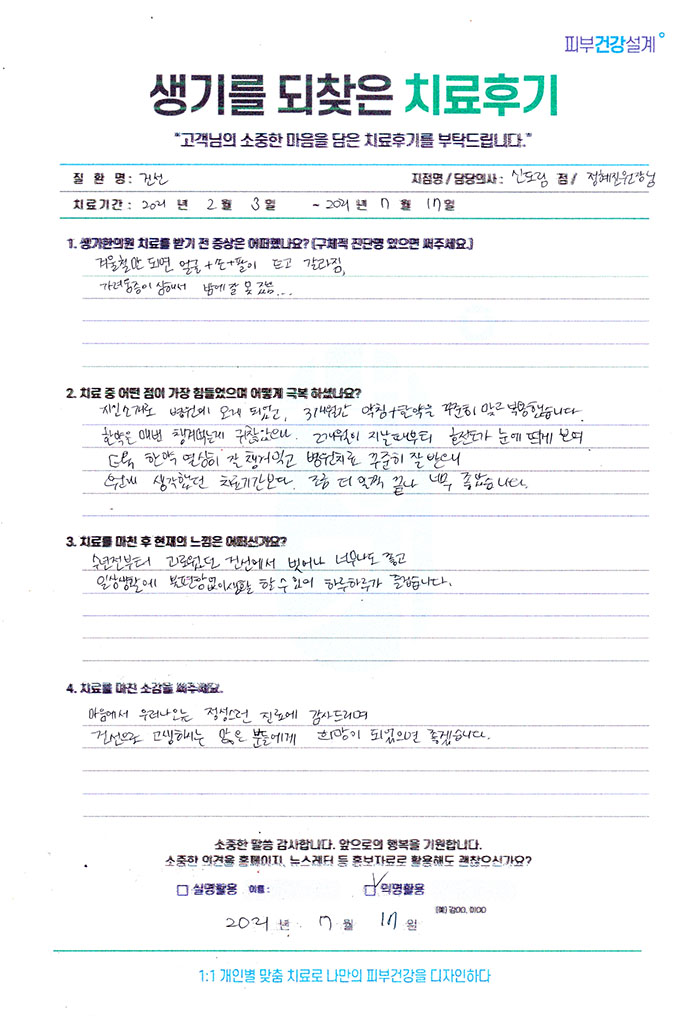 피부건강설계
생기를 되찾은 치료후기
"고객님의 소중한 마음을 담은 치료후기를 부탁드립니다."
질 환 명 : 건선 지점명 / 담당의사 : 신도림 점 / 정혜진원장님
치료기간 : 2021 년 2 월 3 일 ~ 2021 년 7 월 17 일
1. 생기한의원 치료를 받기 전 증상은 어떠했나요? (구체적 진단명 있으면 써주세요.)
겨울철만 되면 얼굴+손+팔이 트고 갈라짐,
가려움증이 심해서 밤에 잘 못 잤음...
2. 치료 중 어떤 점이 가장 힘들었으며 어떻게 극복 하셨나요?
지인소개로 병원에 오게 되었고, 3개월간 약침+한약을 꾸준히 맞고 복용했습니다.
한약은 매번 챙겨먹는게 귀찮았으나 2개월이 지난때부터 호전도가 눈에 띄게 보여
더욱 한약 열심히 잘 챙겨먹고 병원치료 꾸준히 잘 받으니
생각했던 치료기간보다 조금 더 일찍 끝나 너무 좋았습니다.
3. 치료를 마친 후 현재의 느낌은 어떠신가요?
수년전부터 괴로웠던 건선에서 벗어나 너무나도 좋고
일상생활에 불편함없이생활 할 수 있어 하루하루가 즐겁습니다.
4. 치료를 마친 소감을 써주세요.
마음에서 우러나오는 정성스런 진료에 감사드리며
건선으로 고생하시는 많은 분들에게 희망이 되었으면 좋겠습니다.
소중한 말씀 감사합니다. 앞으로의 행복을 기원합니다.
소중한 의견을 홈페이지, 뉴스레터 등 홍보자료로 활용해도 괜찮으신가요?
실명활용 이름 : 익명활용
(예) 김OO, 이OO
2021 년 7 월 17 일
1:1 개인별 맞춤 치료로 나만의 피부건강을 디자인하다